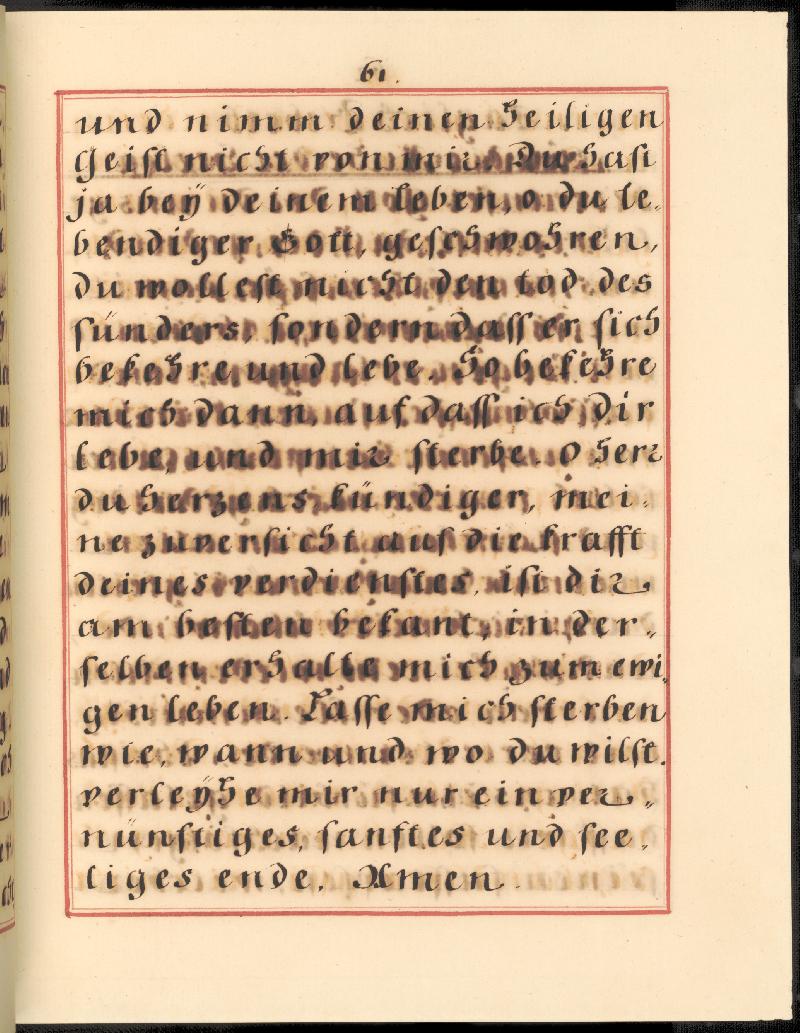 61.
und nimm deinen heiligen
Geist nicht von mir. Du hast
ja bey̎ deinem leben, o du le„
bendiger Gott, geschwohren,
du wollest nicht den tod des
sünders, sondern dass er sich
bekehre und lebe. So bekehre
mich dann, auf dass ich dir
lebe, und mir sterbe. O herr
du herzens kündiger, mei„
ne zuversicht auf die krafft
deines verdienstes, ist dir
am besten bekant, in der„
selben erhalte mich zum ewi„
gen leben. Lasse mich sterben
wie, wann und wo du wilst.
verleÿhe mir nur ein ver„
nünftiges, sanftes und see„
liges ende. Amen.